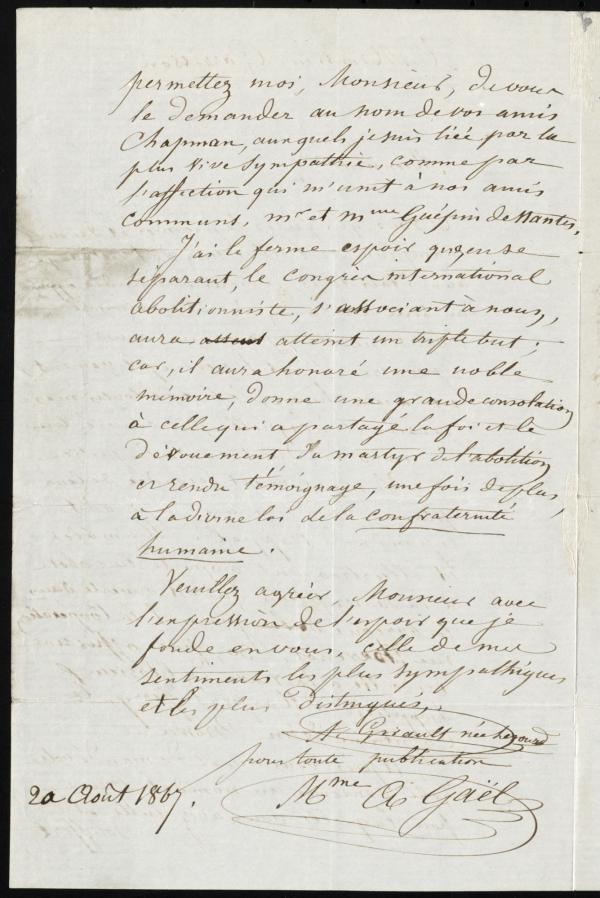 permettez moi, Monsieur, de vous
le demander au nom de vos amis
Chapman, auxquels je suis liée par la
plus vive sympathie, comme par
l'affection qui m'unit à nos amis
communs, Mr et Mme Guépin de Nantes.
J'ai le ferme espoir qu'en se
séparant, le Congrès international
abolitionniste, s'associant à nous,
aura atteint un triple but;
car, il aura honoré une noble
mémoire, donné une grande consolation
à celle qui a partagé la foi et le
dévouement du martyr de l'abolition
et rendu témoignage, une fois de plus,
à la divine loi de la confraternité
humaine.
Veuillez agréer, Monsieur avec
l'expression de l'espoir que je
fonde en vous, celle de mes
sentiments les plus sympathiques
et les plus distingués,
A. Griault née
pour toute publication
Mme A Gaël
20 Août 1867.